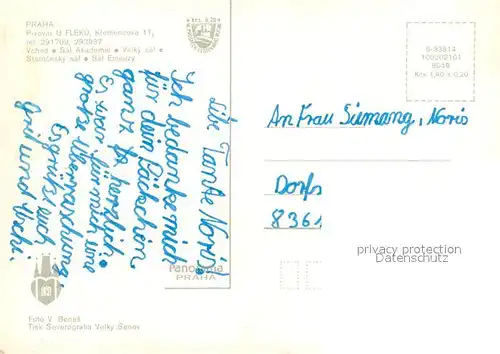 PRAHA
Pivovar U FLEKŮ, Křemencova 11,
tel. 291709, 293937
Vchod • Sál Akademie • Velký sál •
Staročeský sál • Sál Emauzy
Libe Tante Noris!
Ich bedanke mich
für dein Päckchen
ganz herzlich.
Es war für mich eine
große Überraschung!
Es grüßt euch
Grit und Uschi.
Panorama
PRAHA
Foto V. Beneš
Tisk Severografia Velký Šenov
100200101
Kčs 1,40 x 0,20
An Frau Siemang, Noris
Dorfs
8361
privacy protection
Datenschutz